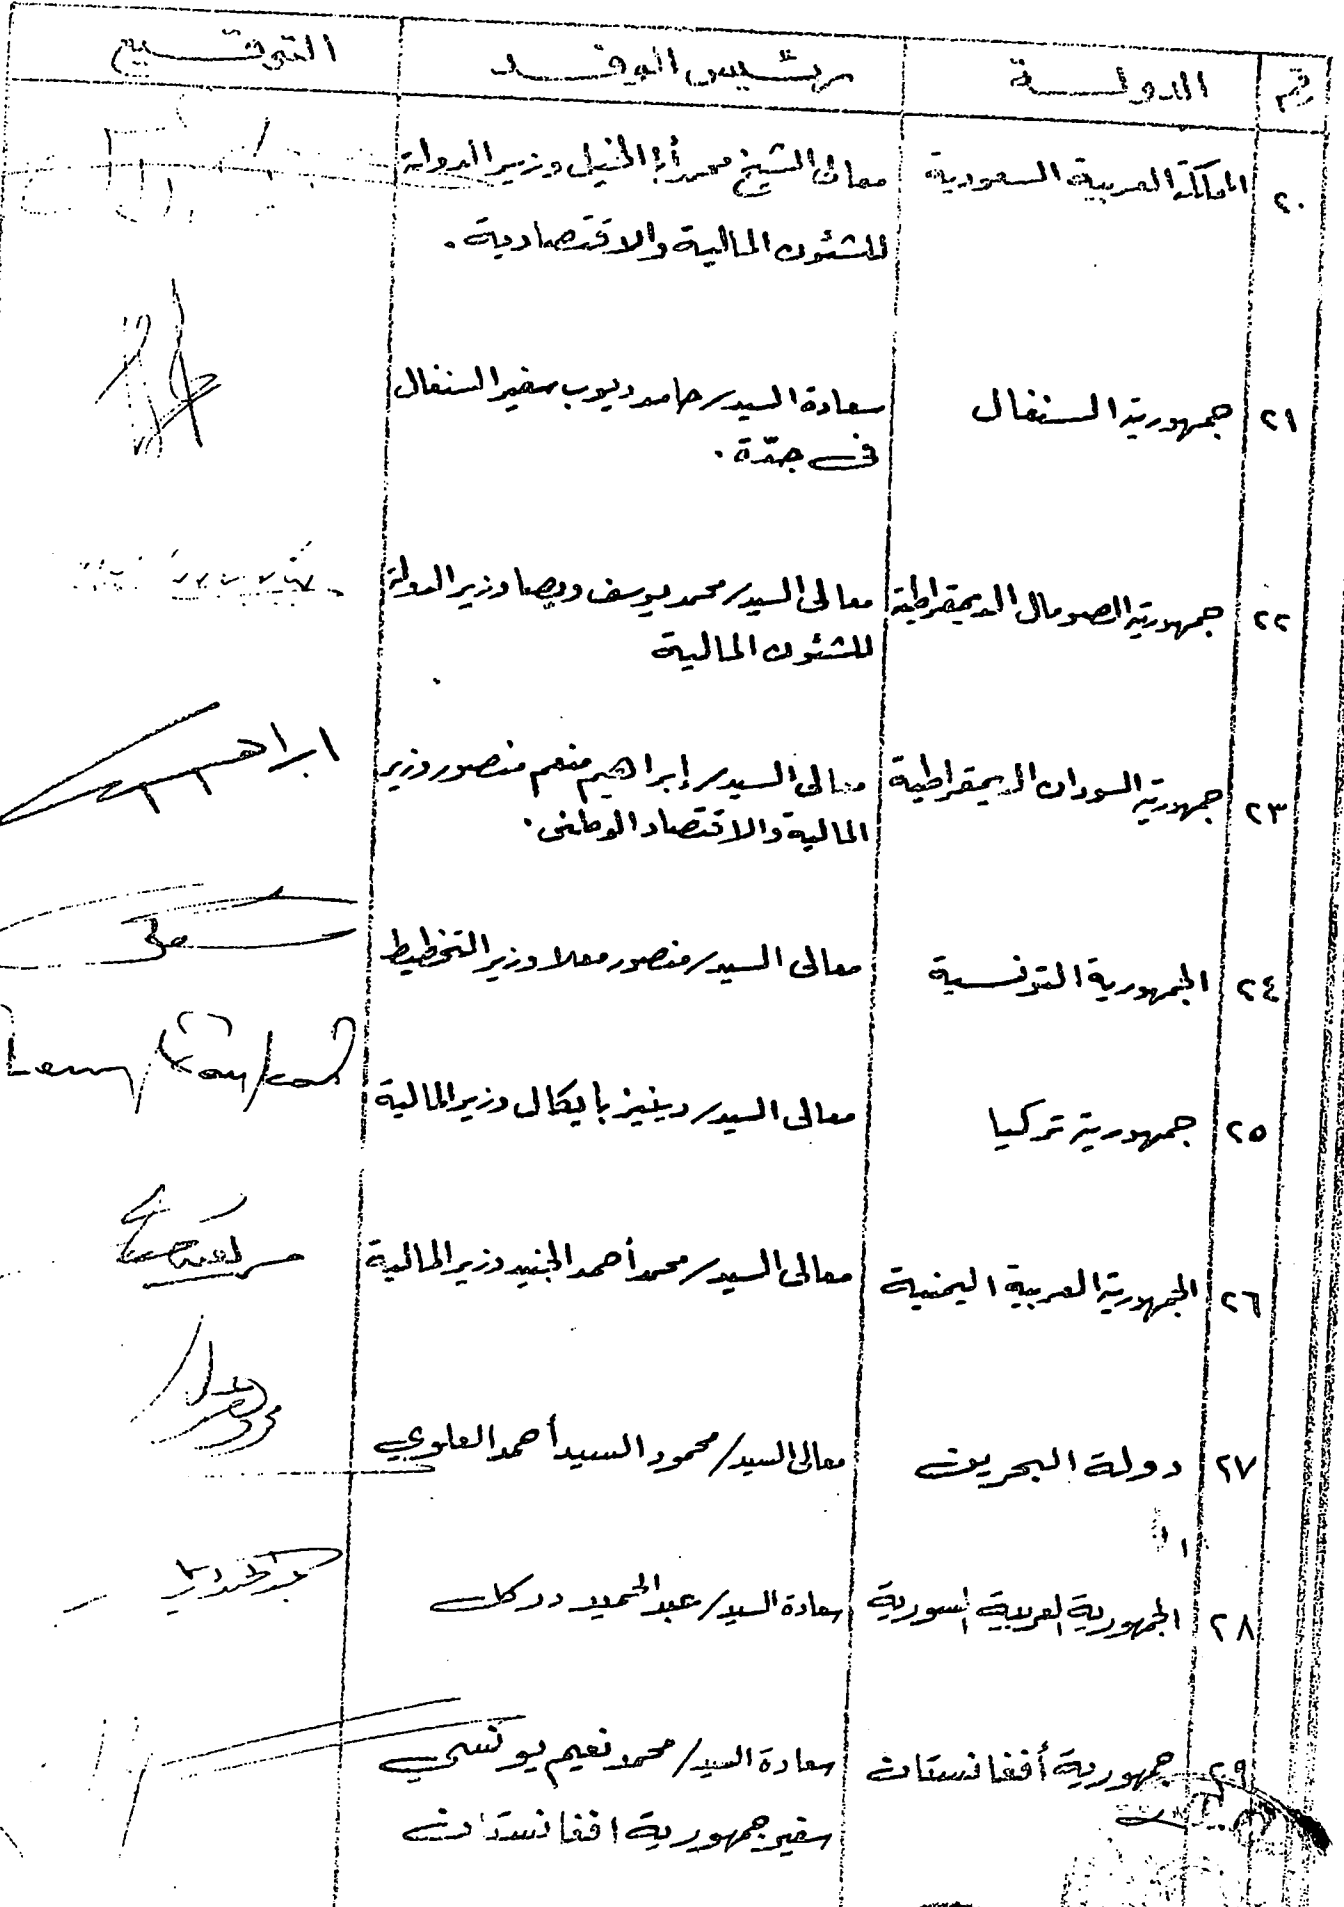 رقم الدولــة رئيس الوفــد التوقــيع
٢٠ المملكة العربية السعودية معالى الشيخ محمد أبا الخيل وزير الدولة
للشئون المالية والاقتصادية .
٢١ جمهورية السنغال سعادة السيد/ حامد ديوب سفير السنغال
فى جدّة .
٢٢ جمهورية الصومال الديمقراطية معالى السيد/ محمد يوسف ويصا وزير الدولة
للشئون المالية
٢٣ جمهورية السودان الديمقراطية معالى السيد/ إبراهيم منعم منصور وزير
المالية والاقتصاد الوطنى .
٢٤ الجمهورية التونسية معالى السيد/ منصور معلا وزير التخطيط
٢٥ جمهورية تركيا معالى السيد/ دينيز بايكال وزير المالية
٢٦ الجمهورية العربية اليمنية معالى السيد/ محمد أحمد الجنيد وزير المالية
٢٧ دولة البحرين معالى السيد/ محمود السيد أحمد العلوي
٢٨ الجمهورية العربية السورية سعادة السيد/ عبد الحميد دركل
٢٩ جمهورية أفغانستان سعادة السيد/ محمد نعيم يونسي
سفير جمهورية افغانستان